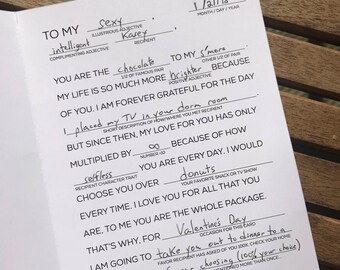 1/21/18
MONTH / DAY / YEAR
TO MY sexy,
ILLUSTRIOUS ADJECTIVE
intelligent Karey,
COMPLIMENTING ADJECTIVE RECIPIENT
YOU ARE THE chocolate TO MY s'more
1/2 OF FAMOUS PAIR OTHER 1/2 OF PAIR
MY LIFE IS SO MUCH MORE brighter BECAUSE
POSITIVE ADJECTIVE
OF YOU. I AM FOREVER GRATEFUL FOR THE DAY
I placed my TV in your dorm room.
SHORT DESCRIPTION OF HOW/WHERE YOU MET RECIPIENT
BUT SINCE THEN, MY LOVE FOR YOU HAS ONLY
MULTIPLIED BY ∞ BECAUSE OF HOW
NUMBER >10
selfless YOU ARE EVERY DAY. I WOULD
RECIPIENT CHARACTER TRAIT
CHOOSE YOU OVER donuts
YOUR FAVORITE SNACK OR TV SHOW
EVERY TIME. I LOVE YOU FOR ALL THAT YOU
ARE. TO ME YOU ARE THE WHOLE PACKAGE.
THAT'S WHY, FOR Valentine's Day
OCCASION FOR THIS CARD
I AM GOING TO take you out to dinner to a
FAVOR RECIPIENT HAS ASKED OF YOU 100X. CHECK YOUR HOME.
choosing (100% your choice)
MENTIONED MORE THAN ONCE